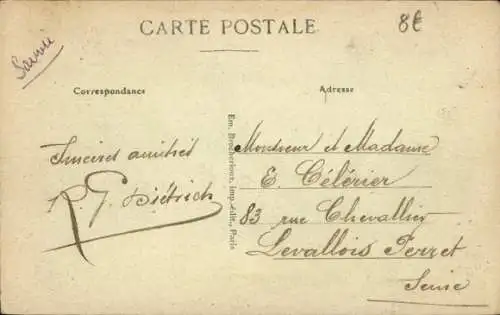 CARTE POSTALE
8€
Savoie
Correspondance
Adresse
Sincères amitiés
R. G. Diétrich
Em. Brocherioux, imp.-édit., Paris
Monsieur et Madame
E. Célérier
83 rue Chevallier
Levallois Perret
Seine